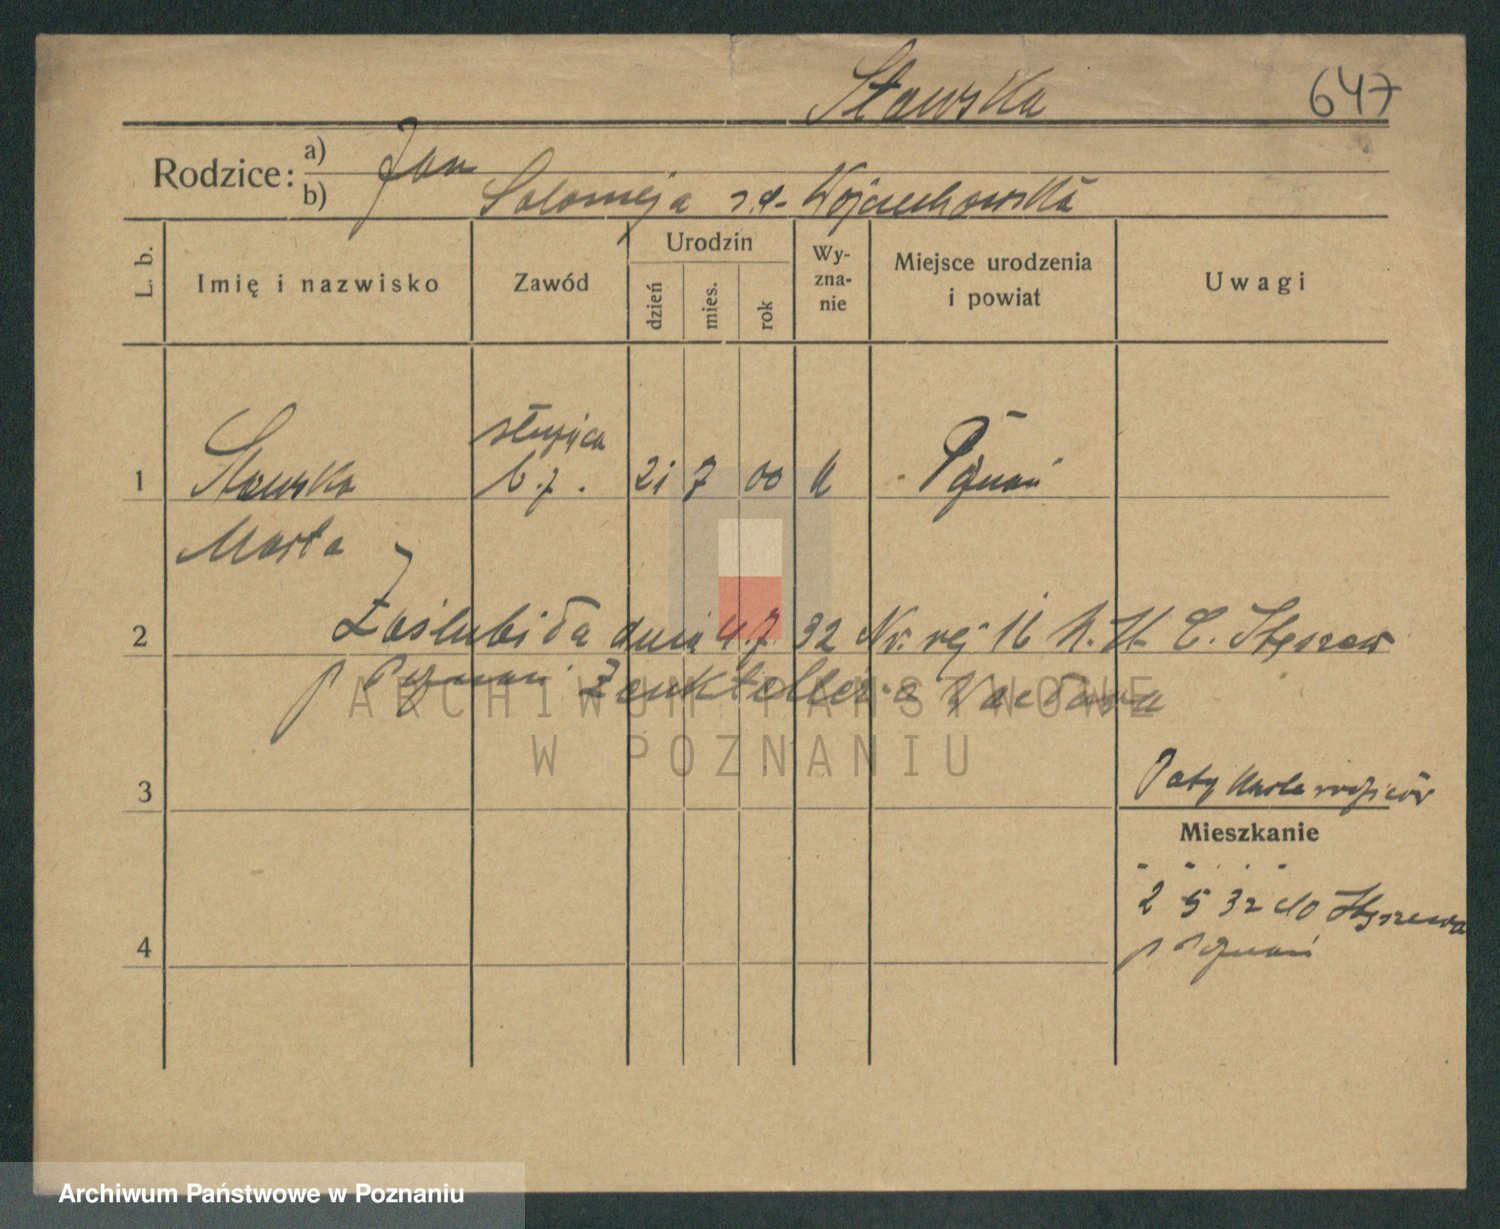 Stawska 647
Rodzice: a) Jan
b) Salomeja z d. Wojciechowska
L. b.
Imię i nazwisko
Zawód
Urodzin
dzień
mies.
rok
Wy-
zna-
nie
Miejsce urodzenia
i powiat
Uwagi
służąca
1 Stawska b. z. 21 7 00 k Poznań
Marta
2 Zaślubiła dnia 4.7 32 Nr. rej 16 U. St. C. Stęszew
p Poznań Zenktellera Wacława
3
Daty karta rodziców
Mieszkanie
2 5 32 do Stęszewa
p Poznań
4
ARCHIWUM PAŃSTWOWE
W POZNANIU
Archiwum Państwowe w Poznaniu